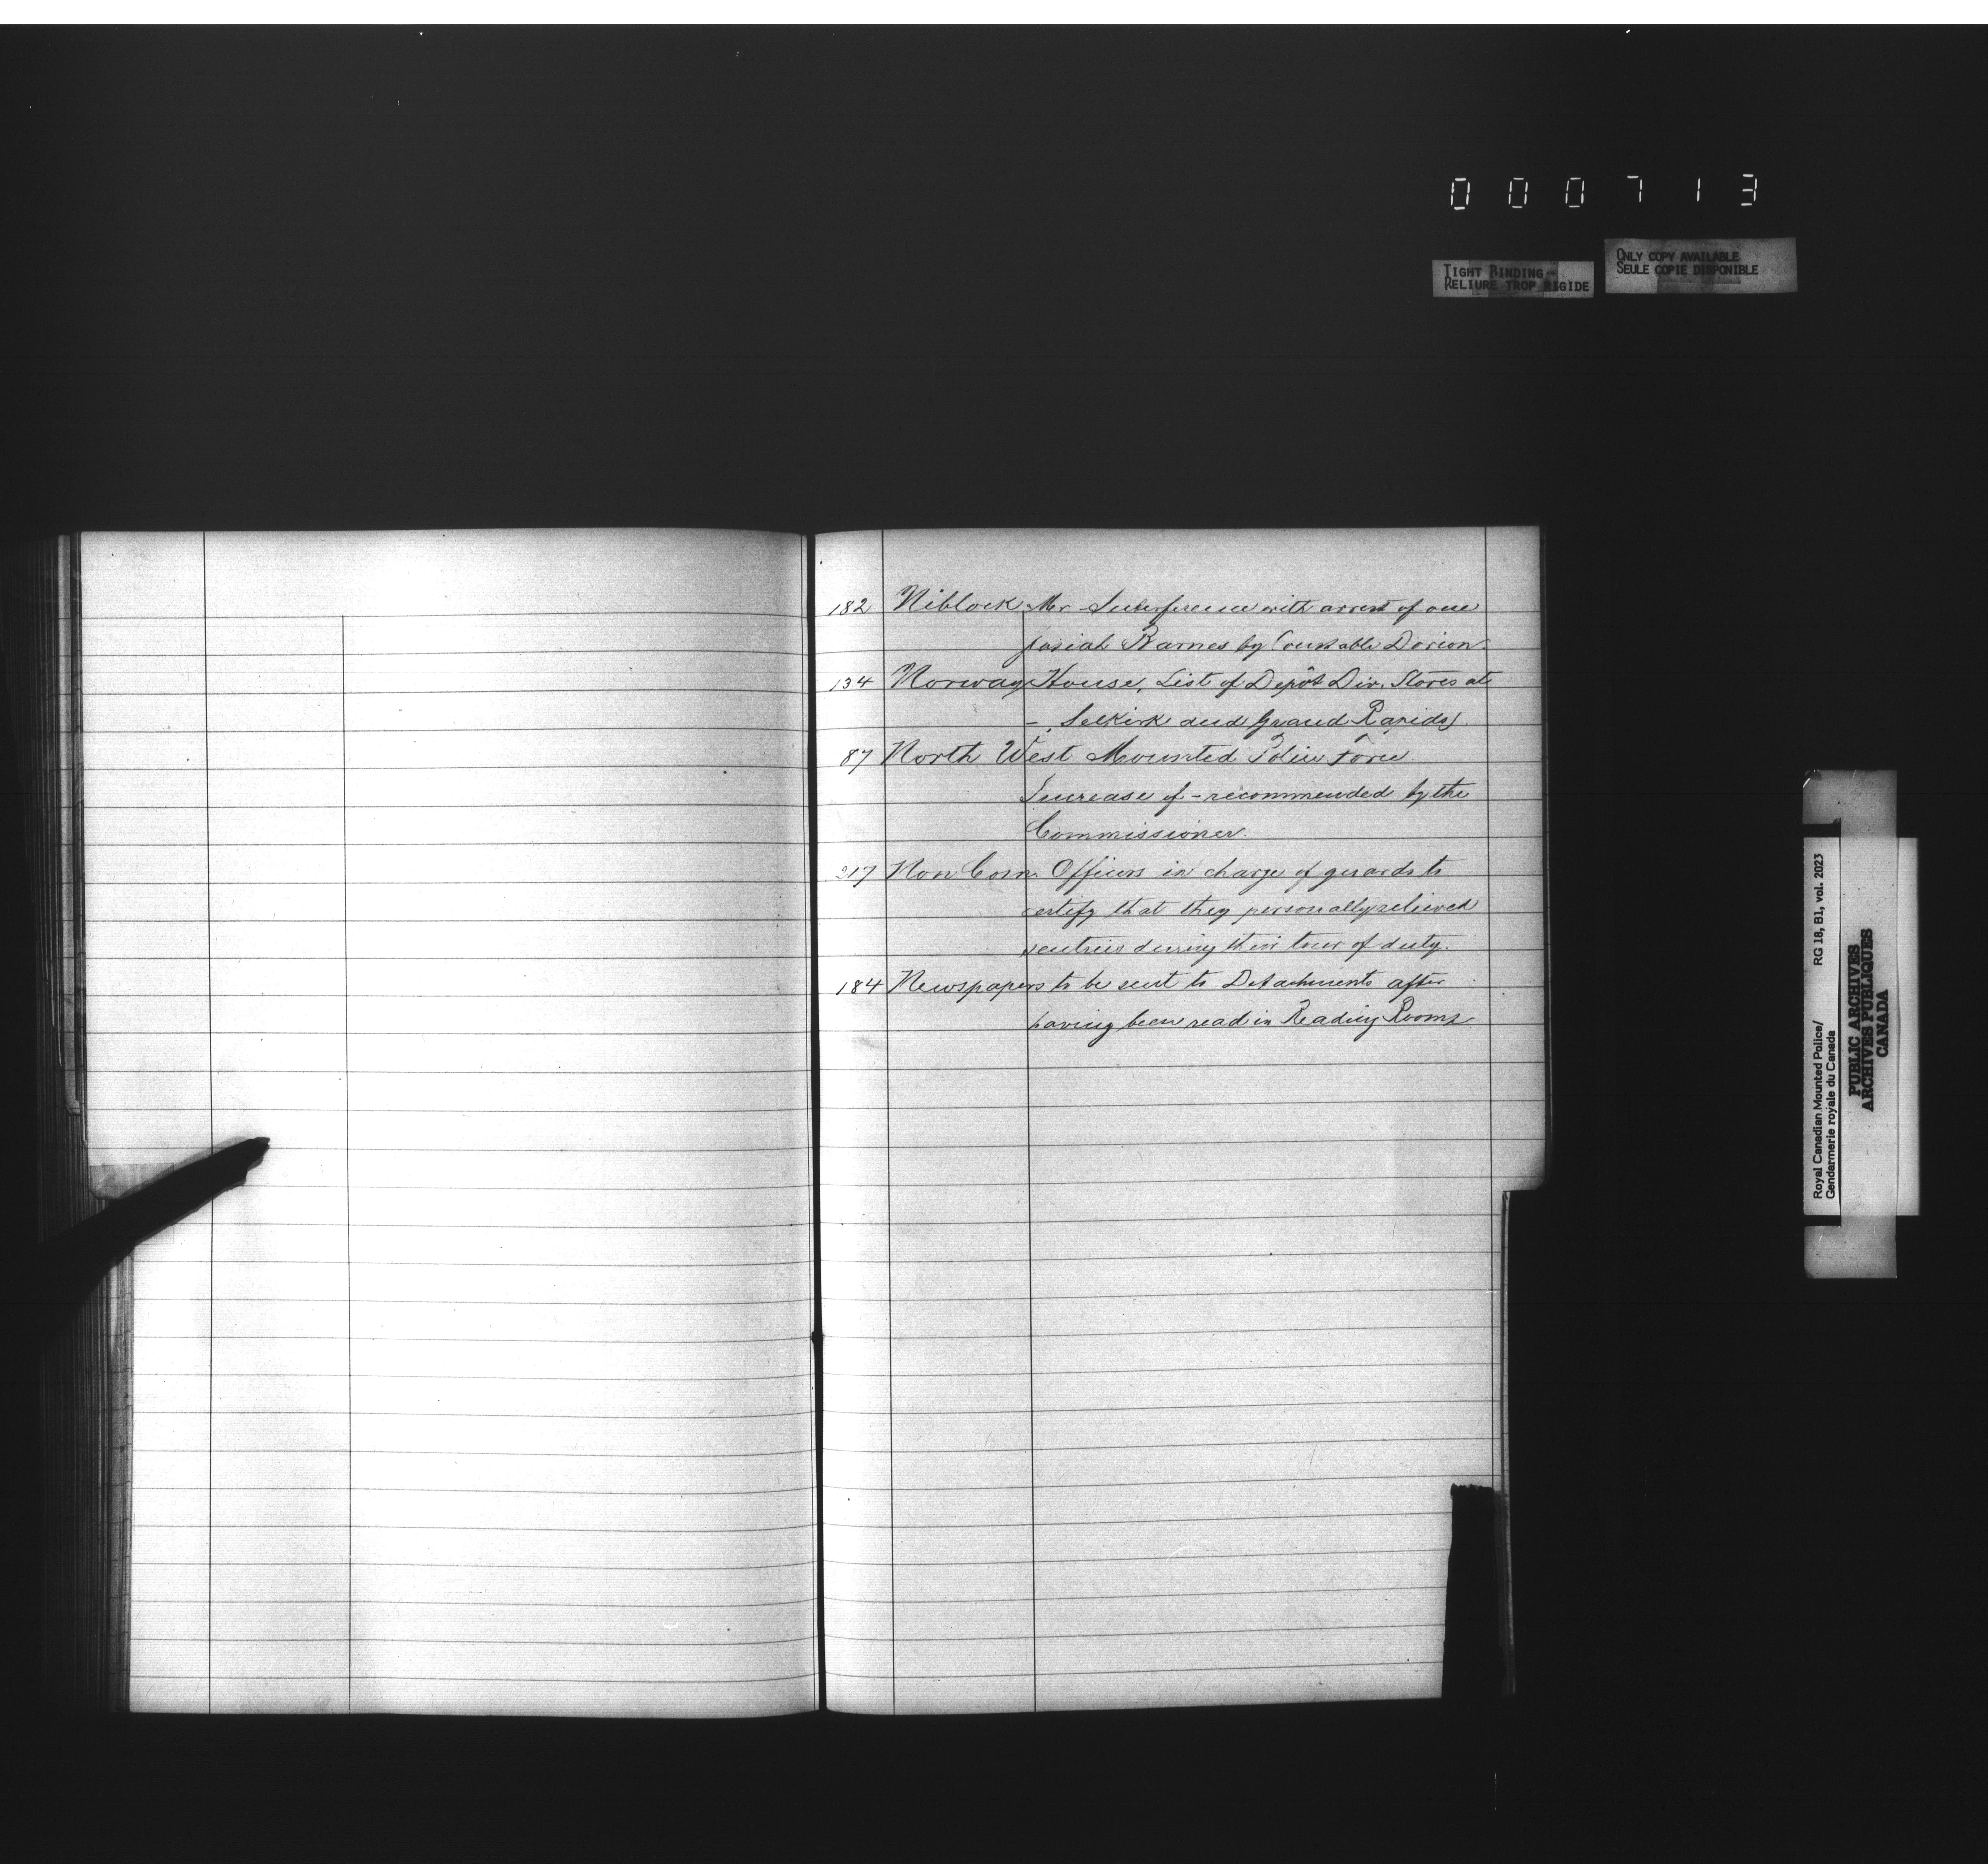 000713
TIGHT BINDING
RELIURE TROP RIGIDE
ONLY COPY AVAILABLE
SEULE COPIE DISPONIBLE
182 Niblock Mr - Interference with arrest of one
Josiah Barnes by Constable Dorion.
134 Norway House, List of Depôt Div. Stores at
- Selkirk and Grand Rapids.
87 North West Mounted Police Force.
Increase of - recommended by the
Commissioner.
217 Non Com. Officers in charge of guards to
certify that they personally relieved
sentries during their tour of duty.
184 Newspapers to be sent to Detachments after
having been read in Reading Rooms
Royal Canadian Mounted Police/ RG 18, B1, vol. 2023
Gendarmerie royale du Canada
PUBLIC ARCHIVES
ARCHIVES PUBLIQUES
CANADA